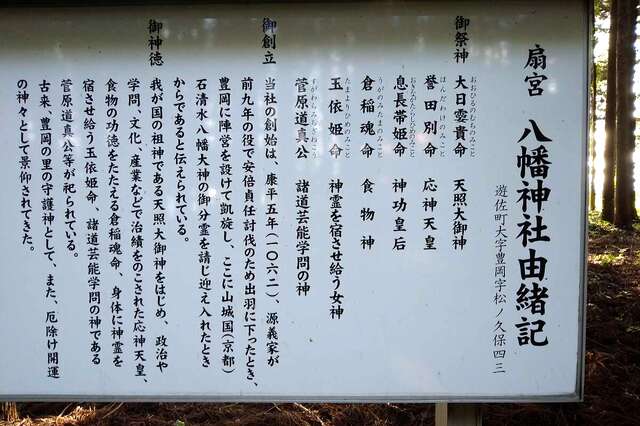 扇宮 八幡神社由緒記
遊佐町大字豊岡字松ノ久保四三
御祭神 大日霊貴命 天照大御神
おおひるめむちのみこと
誉田別命 応神天皇
ほんだわけのみこと
息長帯姫命 神功皇后
おきながたらしひめのみこと
倉稲魂命 食物神
うがのみたまのみこと
玉依姫命 神霊を宿させ給う女神
たまよりひめのみこと
菅原道真公 諸道芸能学問の神
すがわらみちざねこう
御創立 当社の創始は、康平五年(一〇六二)、源義家が
前九年の役で安倍貞任討伐のため出羽に下ったとき、
豊岡に陣営を設けて凱旋し、ここに山城国(京都)
石清水八幡大神の御分霊を請じ迎え入れたとき
からであると伝えられている。
御神徳 我が国の祖神である天照大御神をはじめ、政治や
学問、文化、産業などで治績をのこされた応神天皇、
食物の功徳をたたえる倉稲魂命、身体に神霊を
宿させ給う玉依姫命、諸道芸能学問の神である
菅原道真公等が祀られている。
古来、豊岡の里の守護神として、また、厄除け開運
の神々として景仰されてきた。